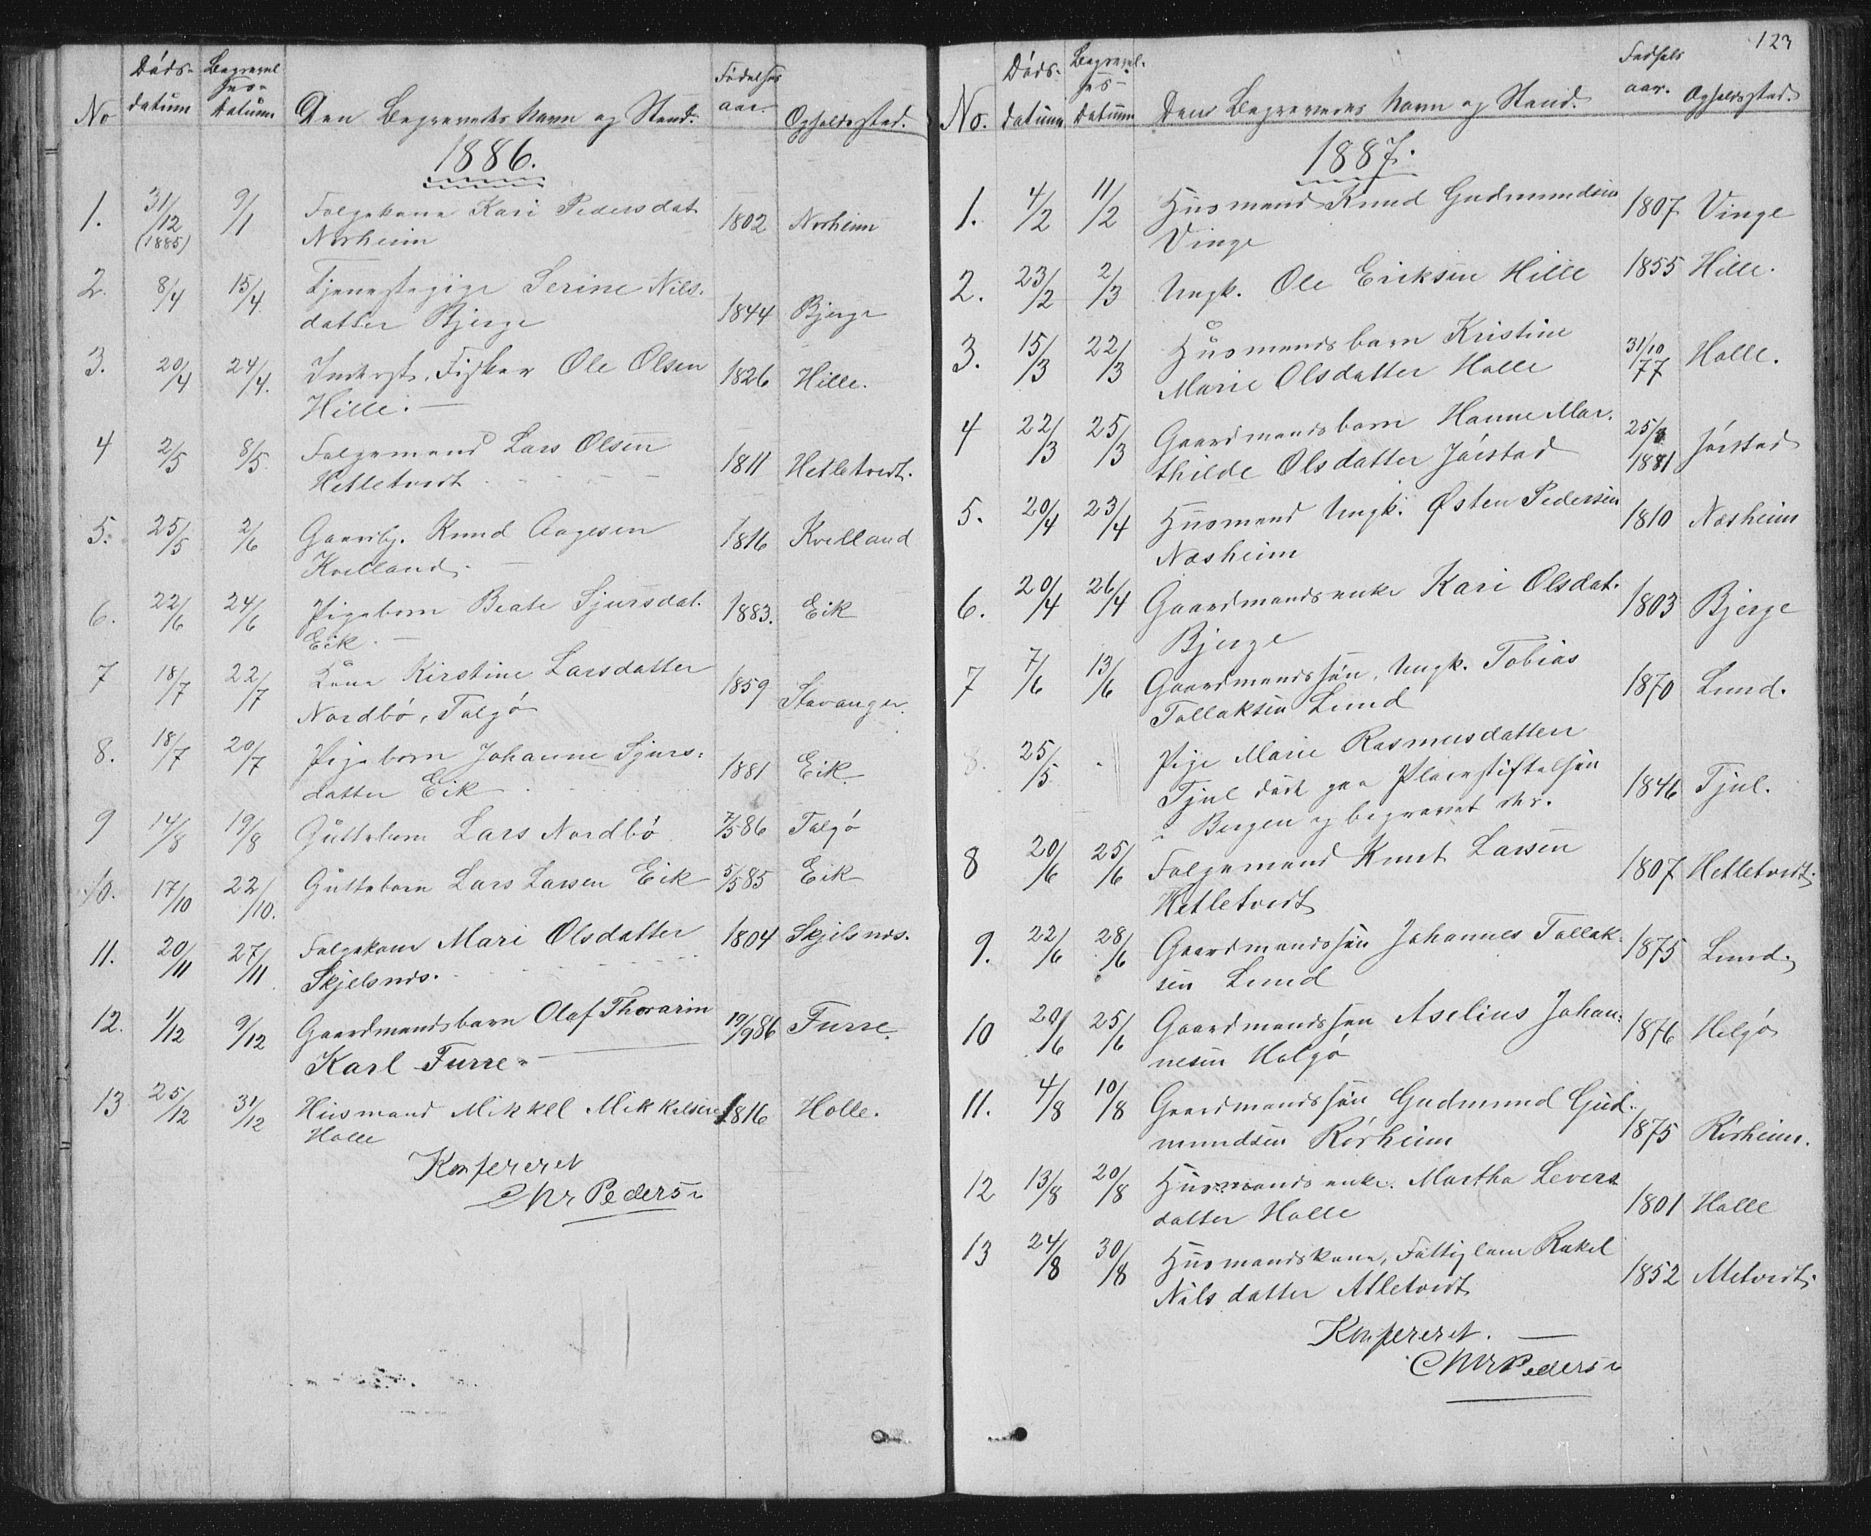 No
Døds-
datum
Begravel
ses-
Datum
Den Begravedes Navn og Stand.
Fødelses
aar.
Opholdssted.
1886.
1. 31/12 (1885) 9/1 Folgekone Kari Pedersdat. 1802 Norheim
Norheim
2. 8/4 15/4 Tjenestepige Serine Nils-
datter Bjerge 1844 Bjerge
3. 20/4 24/4 Inderst. Fisker Ole Olsen 1826 Hille.
Hille.
4 2/5 8/5 Folgemand Lars Olsen 1811 Hetletvedt.
Hetletvedt
5. 25/5 2/6 Gaardbr. Knud Aagesen 1816 Kvelland
Kvelland.
6. 22/6 24/6 Pigebarn Beate Sjursdat. 1883. Eik
Eik.
7 18/7 22/7 Kone Kirstine Larsdatter 1859 Stavanger.
Nordbö, Talgö
8. 18/7 20/7 Pigebarn Johanne Sjurs-
datter Eik 1881 Eik
9 14/8 19/8 Guttebarn Lars Nordbö 7/5 86 Talgö
10. 17/10 22/10. Guttebarn Lars Larsen Eik 5/5 85 Eik
11. 20/11 27/11 Folgekone Mari Olsdatter 1804 Skjelsnes.
Skjelsnes.
12. 1/12 9/12 Gaardmandsbarn Olaf Thorarin 19/9 86 Furre.
Karl Furre.
13 25/12 31/12 Husmand Mikkel Mikkelsen 1816 Halle.
Halle
Konfereret
Chr Pedersen
123
No.
Døds-
datum
Begravel-
ses-
Datum
Den Begravedes Navn og Stand.
Fødsels
aar.
Opholdssted.
1887.
1. 4/2 11/2 Husmand Knud Gudmundsen 1807 Vinge
Vinge
2. 23/2 2/3 Ungk. Ole Eriksen Hille 1855 Hille.
3. 15/3 22/3 Husmandsbarn Kristine 31/10 77 Halle.
Marie Olsdatter Halle
4 22/3 25/3 Gaardmandsbarn Hanne Mar-
thilde Olsdatter Jörstad 25/8 1881 Jörstad
5. 20/4 23/4 Husmand Ungk. Østen Pedersen 1810 Næsheim
Næsheim
6. 20/4 26/4 Gaardmandsenke Kari Olsdat. 1803 Bjerge
Bjerge
7 7/6 13/6 Gaardmandssön, Ungk. Tobias 1870 Lund.
Tollaksen Lund
8. 25/5 - Pige Marie Rasmusdatter
Tjul död paa Pleiestiftelsen 1846 Tjul.
i Bergen og begravet der.
8 20/6 25/6 Folgemand Knut Larsen 1807 Hetletvedt.
Hetletvedt
9. 22/6 28/6 Gaardmandssön Johannes Tollak- 1875 Lund.
sen Lund
10 20/6 25/6 Gaardmandssön Aselius Johan- 1876 Helgö
nesen Helgö
11. 4/8 10/8 Gaardmandssön Gudmund Gud-
mundsen Rörheim 1875 Rörheim.
12 13/8 20/8 Husmandsenke. Martha Levers
datter Halle 1801 Halle
13 24/8 30/8 Husmandskone, Fattiglem Rakel
Nilsdatter Atletvedt 1852 Metvedt.
Konfereret.
Chr Pedersen